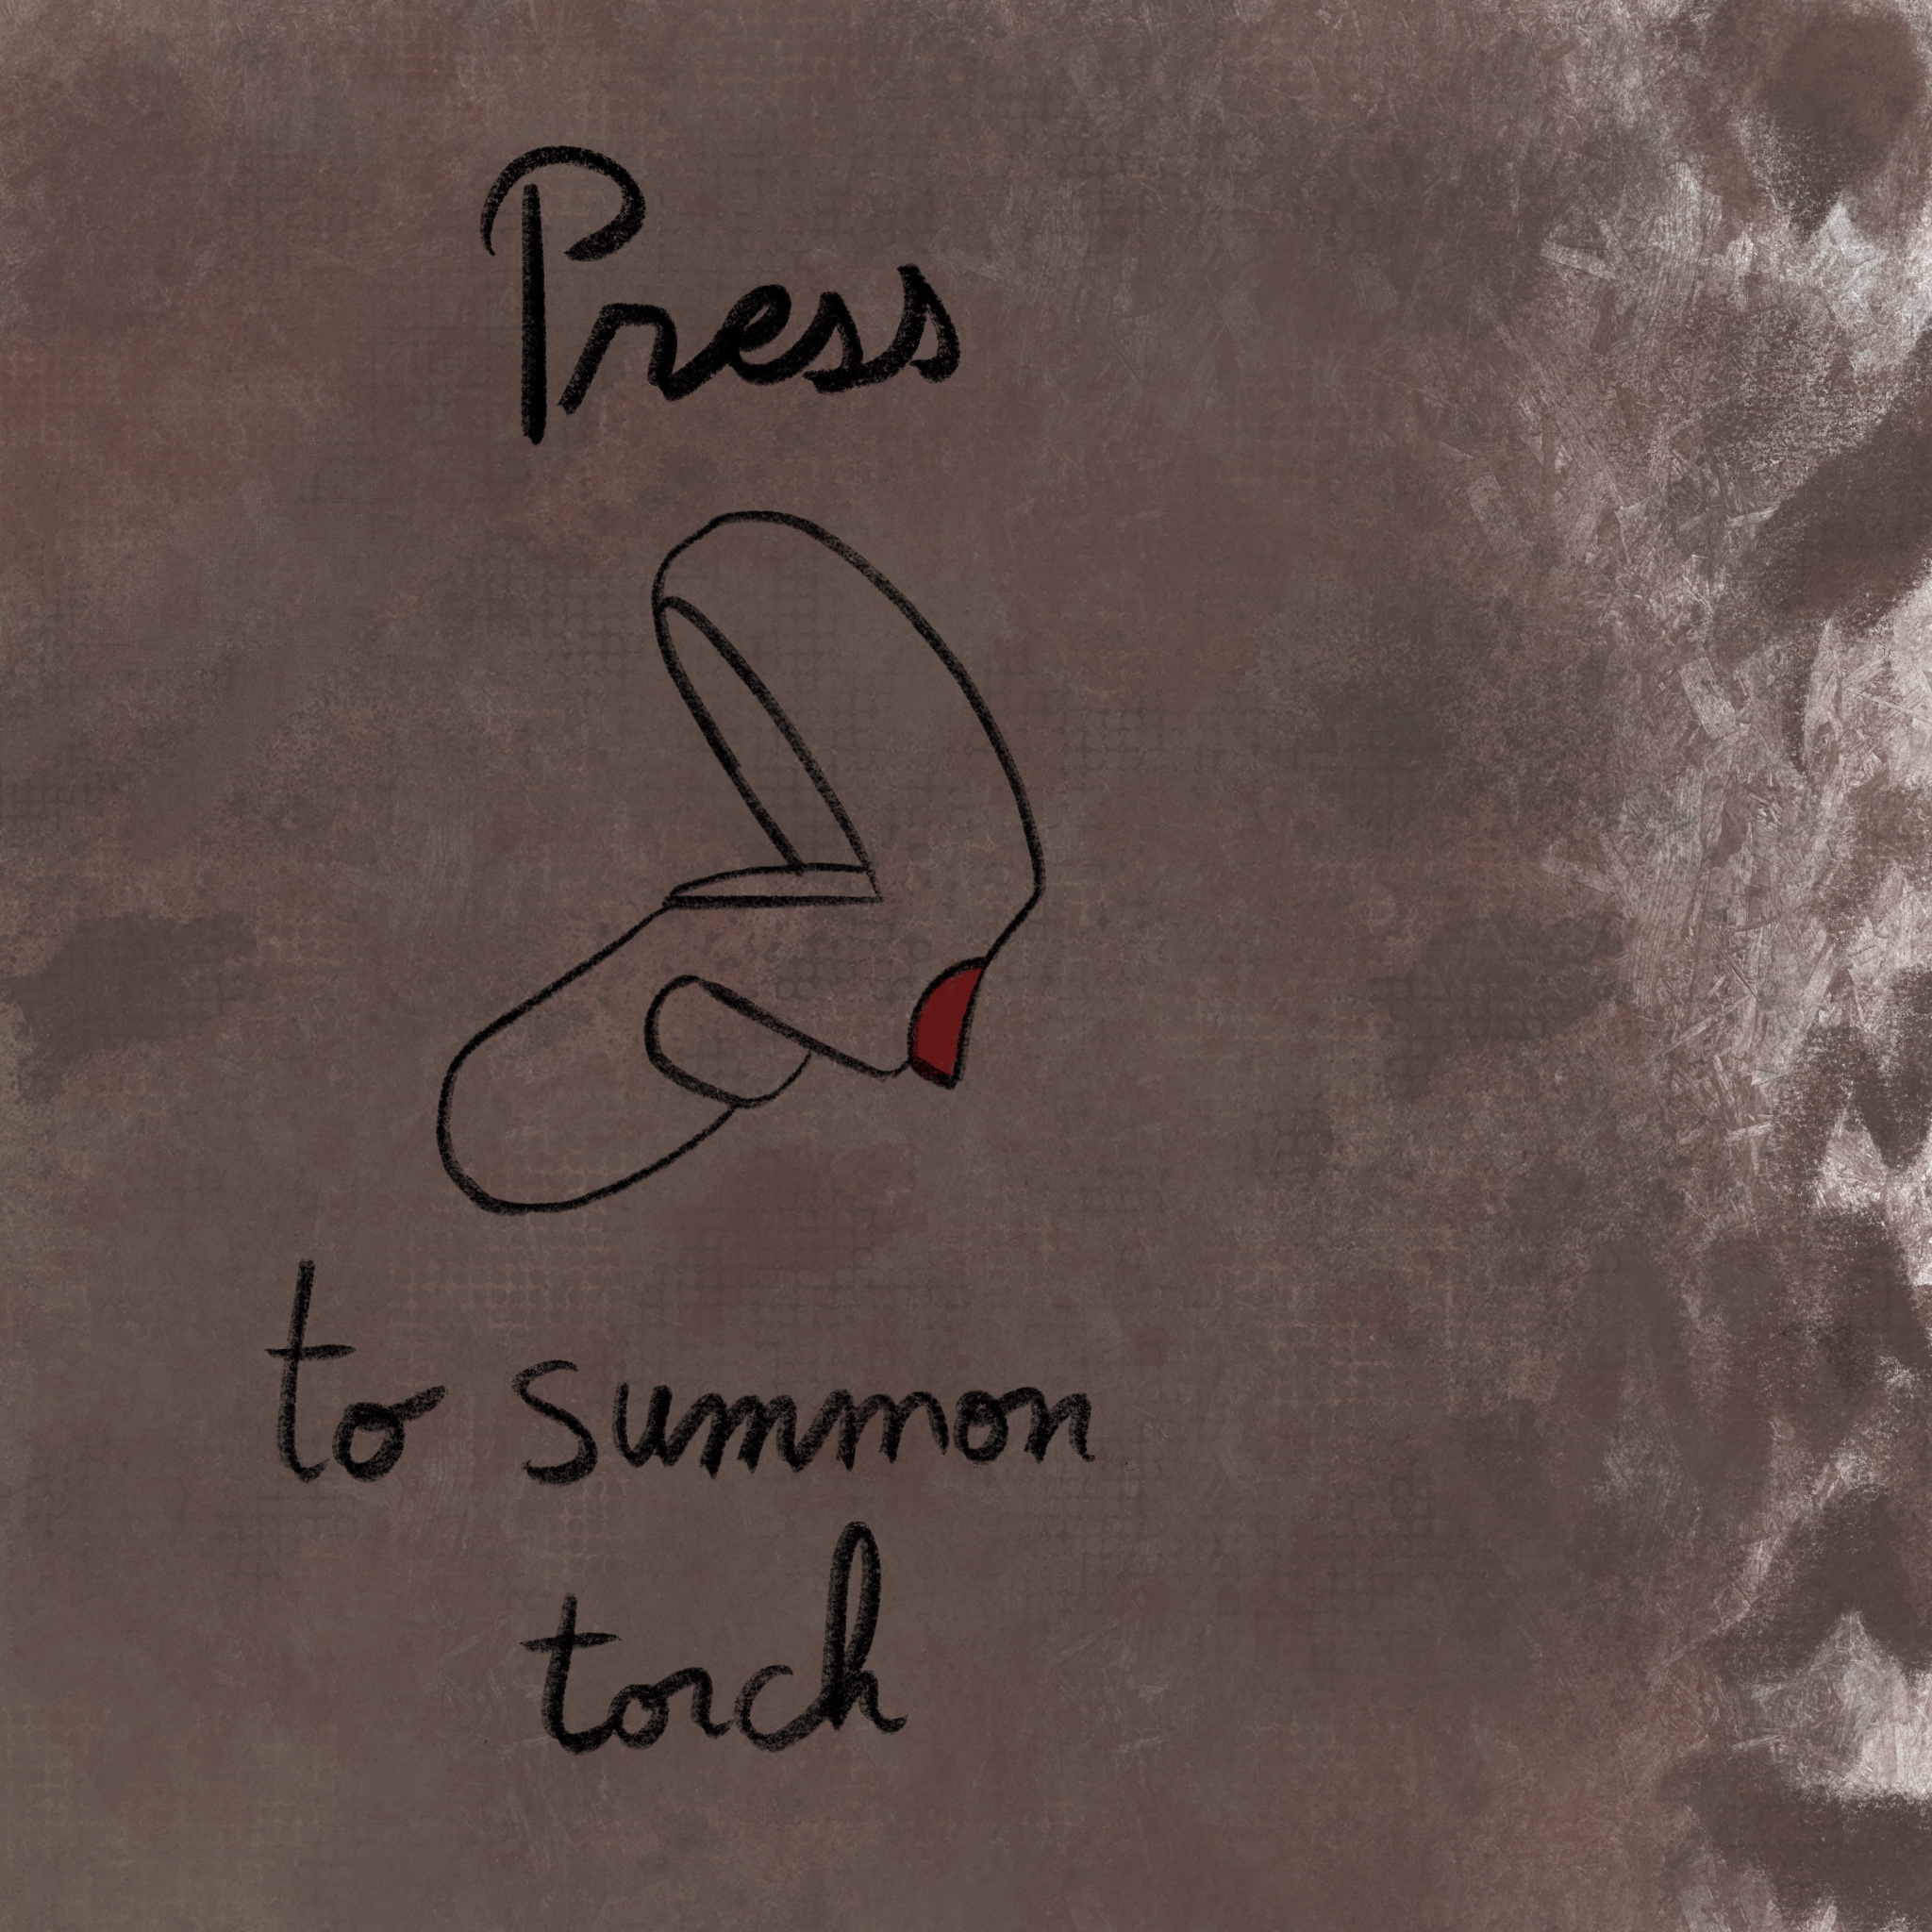 Press
to summon
torch